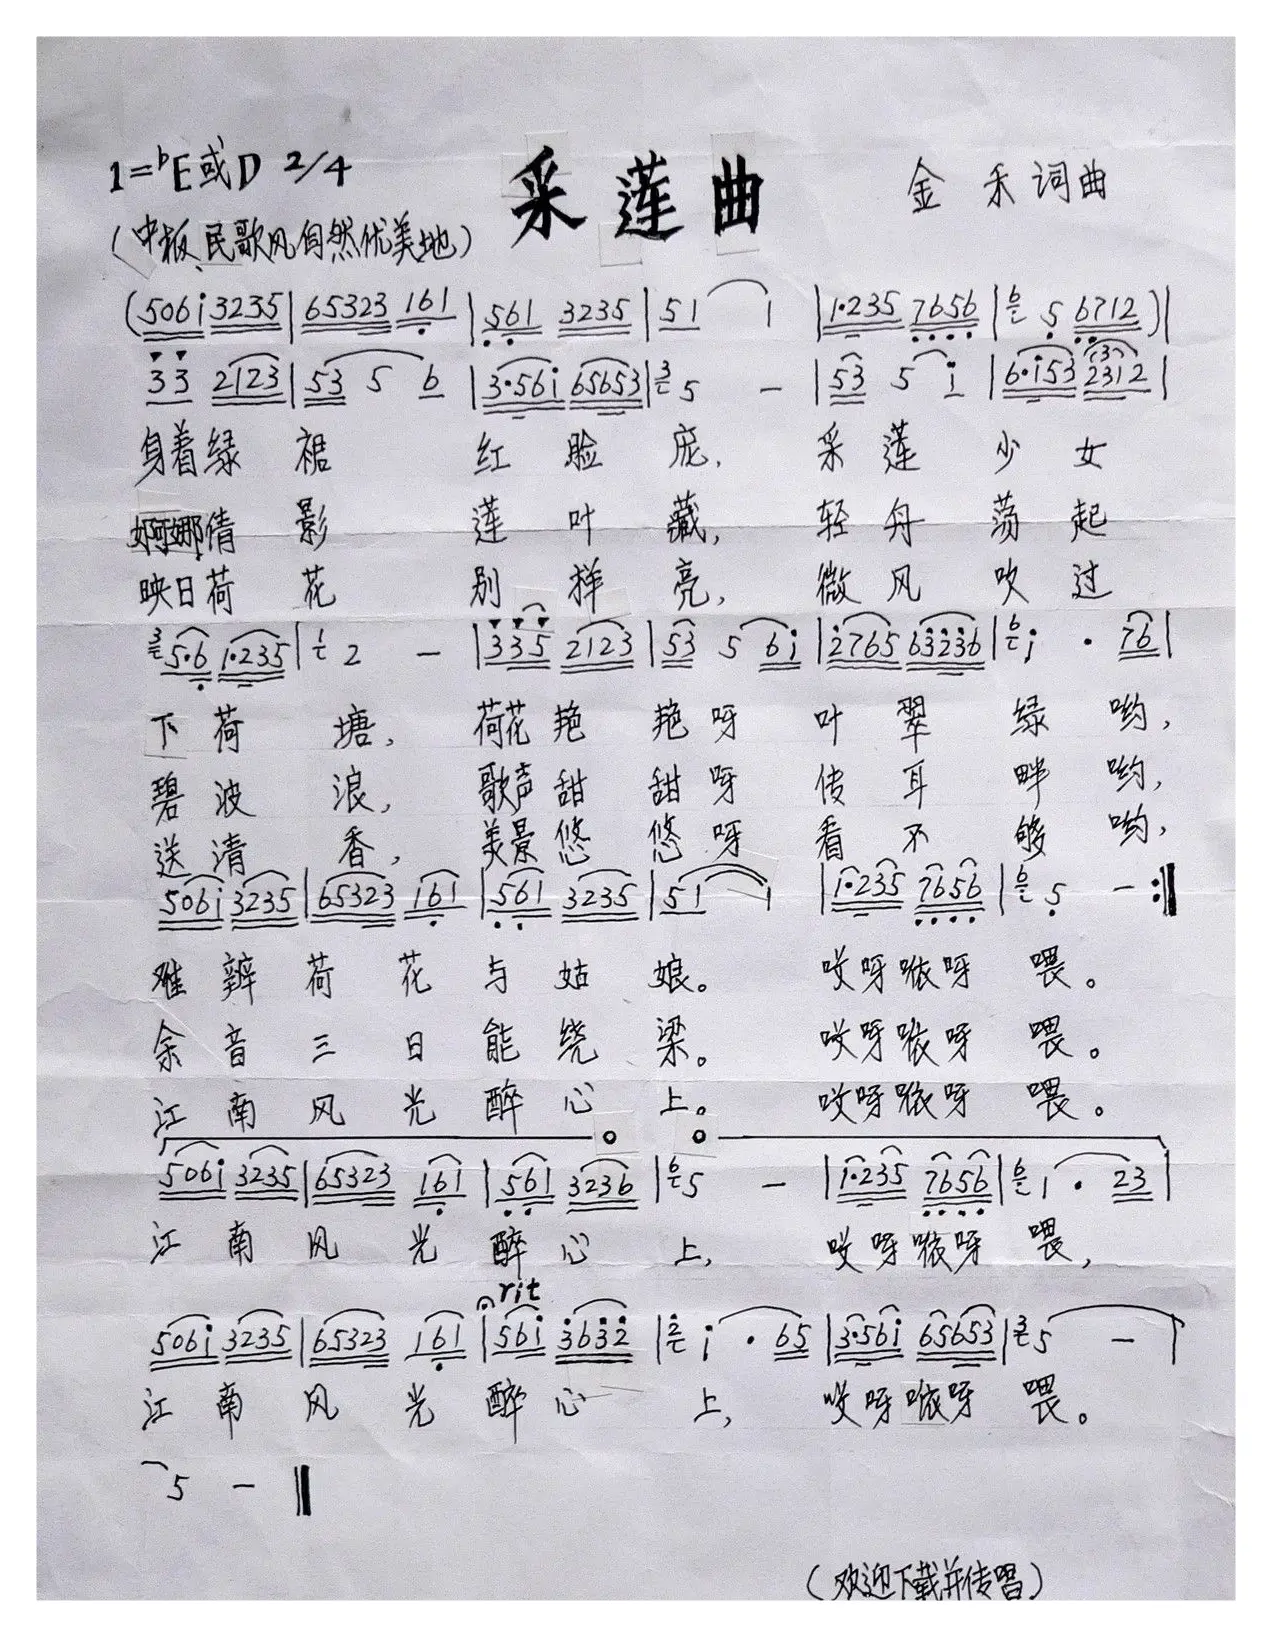 1=♭E或D 2/4
采莲曲
金禾词曲
(中板、民歌风自然优美地)
(506i 3235|65323 161|561 3235|51 1|1·235 7656|6 5 6712)|
33 2123|53 5 6|3·56i 65653|3 5 -|53 5 i|6·i53 2312|
身着绿裙 红脸庞, 采莲少女
婀娜倩影 莲叶藏, 轻舟荡起
映日荷花 别样亮, 微风吹过
3 5·6 1·235|1 2 -|335 2123|53 5 6i|2765 63236|6 i · 76|
下荷塘, 荷花艳艳呀叶翠绿哟,
碧波浪, 歌声甜甜呀传耳畔哟,
送清香, 美景悠悠呀看不够哟,
506i 3235|65323 161|561 3235|51 1|1·235 7656|6 5 -:‖
难辨荷花与姑娘。 哎呀咴呀喂。
余音三日能绕梁。 哎呀咴呀喂。
江南风光醉心上。 哎呀咴呀喂。
506i 3235|65323 161|561 3236|6 5 -|1·235 7656|6 1 · 23|
江南风光醉心上, 哎呀咴呀喂,
rit
506i 3235|65323 161|56i 3632|2 i · 65|3·56i 65653|3 5 -|
江南风光醉心上, 哎呀咴呀喂。
5 -‖
(欢迎下载并传唱)